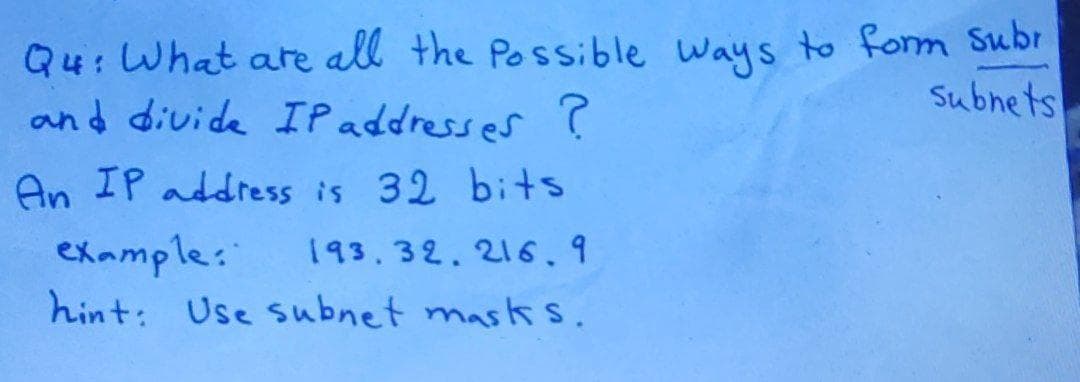 Q4: What are all the Possible ways to form subr
subnets
and divide IP addresses ?
An IP address is 32 bits
example: 193.32.216.9
hint: Use subnet masks.